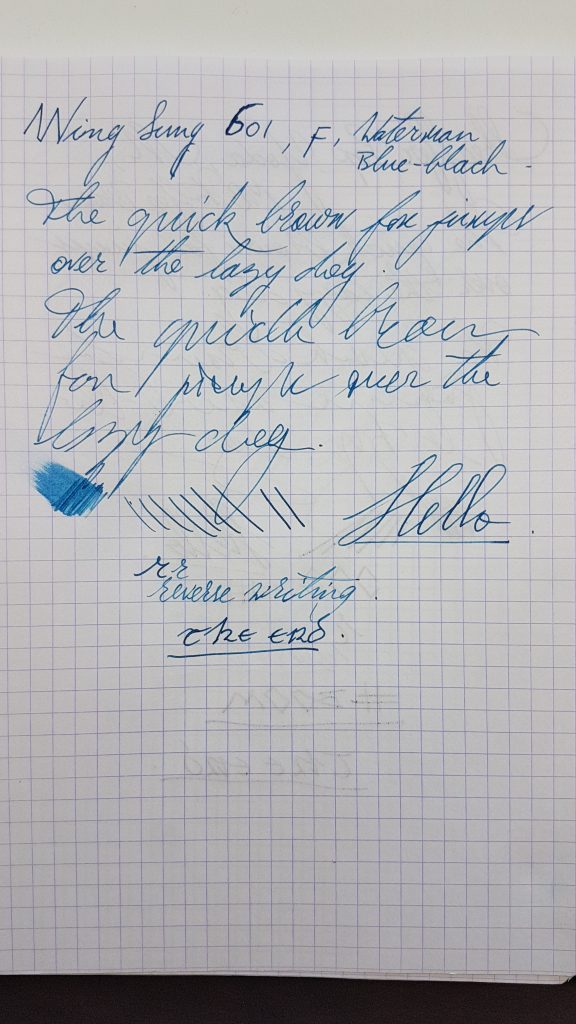 Wing Sung 601, F, Waterman
Blue-black -
The quick brown fox jumps
over the lazy dog.
The quick brown
fox jumps over the
lazy dog.
Hello.
rr
reverse writing.
the end.